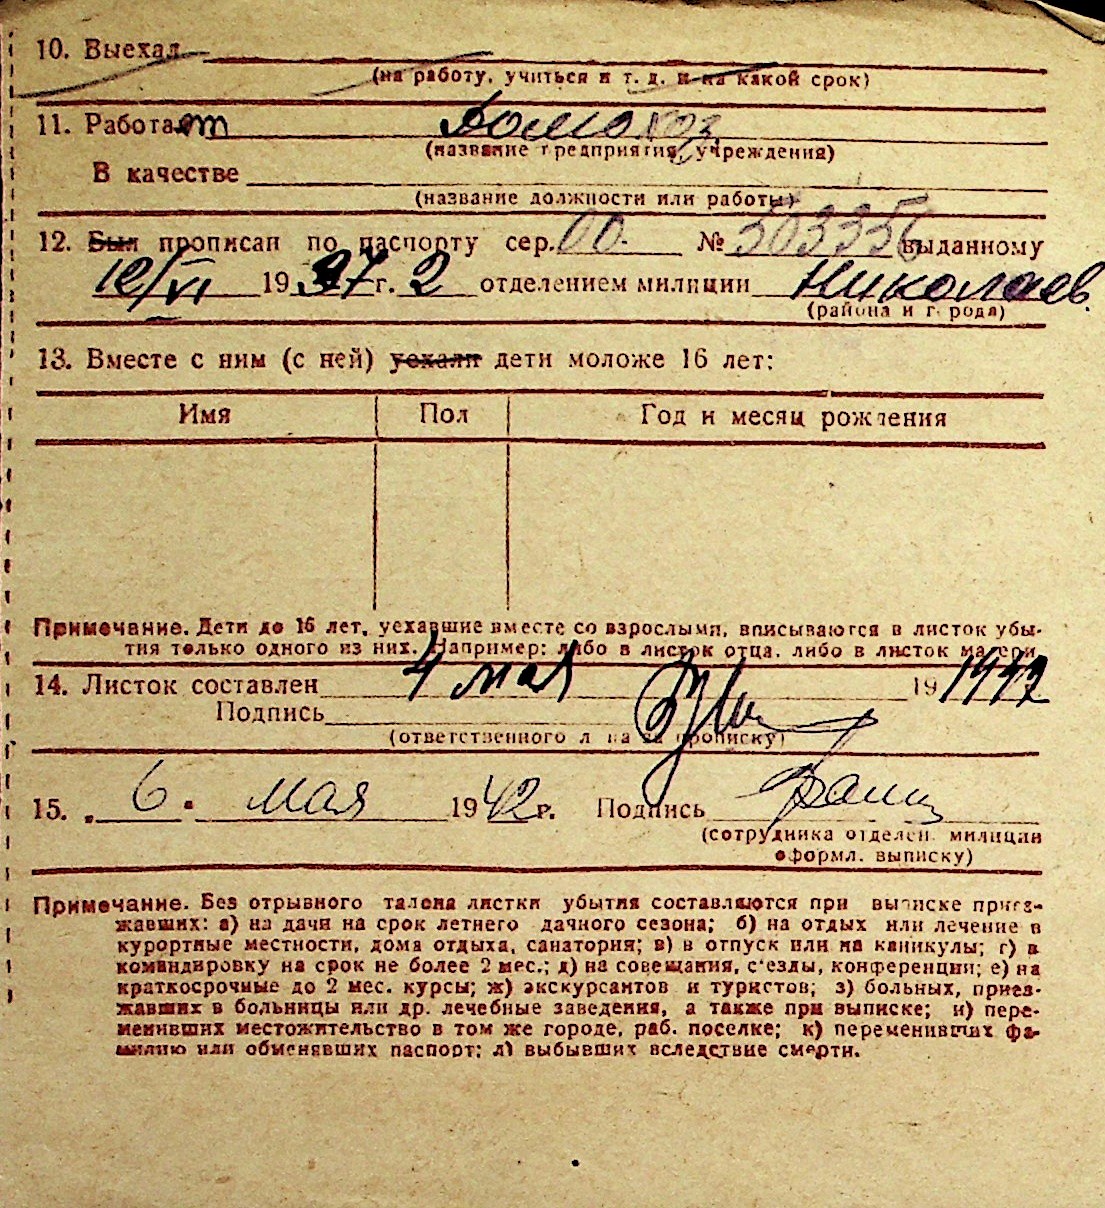 10. Выехал
(на работу, учиться и т. д. и на какой срок)
11. Работает Домохоз
(название предприятия, учреждения)
В качестве
(название должности или работы)
12. Был прописан по паспорту сер. 00. № 503356 выданному
12/VI 1937 г. 2 отделением милиции Николаев
(района и города)
13. Вместе с ним (с ней) уехали дети моложе 16 лет:
Имя Пол Год и месяц рождения
Примечание. Дети до 16 лет, уехавшие вместе со взрослыми, вписываются в листок убы-
тия только одного из них. Например: либо в листок отца, либо в листок матери.
14. Листок составлен 4 мая 19 1942
Подпись
(ответственного лица за прописку)
15. 6. мая 1942 г. Подпись
(сотрудника отделен. милиции
оформл. выписку)
Примечание. Без отрывного талона листки убытия составляются при выписке приез-
жавших: а) на дачи на срок летнего дачного сезона; б) на отдых или лечение в
курортные местности, дома отдыха, санатория; в) в отпуск или на каникулы; г) в
командировку на срок не более 2 мес.; д) на совещания, с'езды, конференции; е) на
краткосрочные до 2 мес. курсы; ж) экскурсантов и туристов; з) больных, приез-
жавших в больницы или др. лечебные заведения, а также при выписке; и) пере-
менивших местожительство в том же городе, раб. поселке; к) переменивших фа-
милию или обменявших паспорт; л) выбывших вследствие смерти.